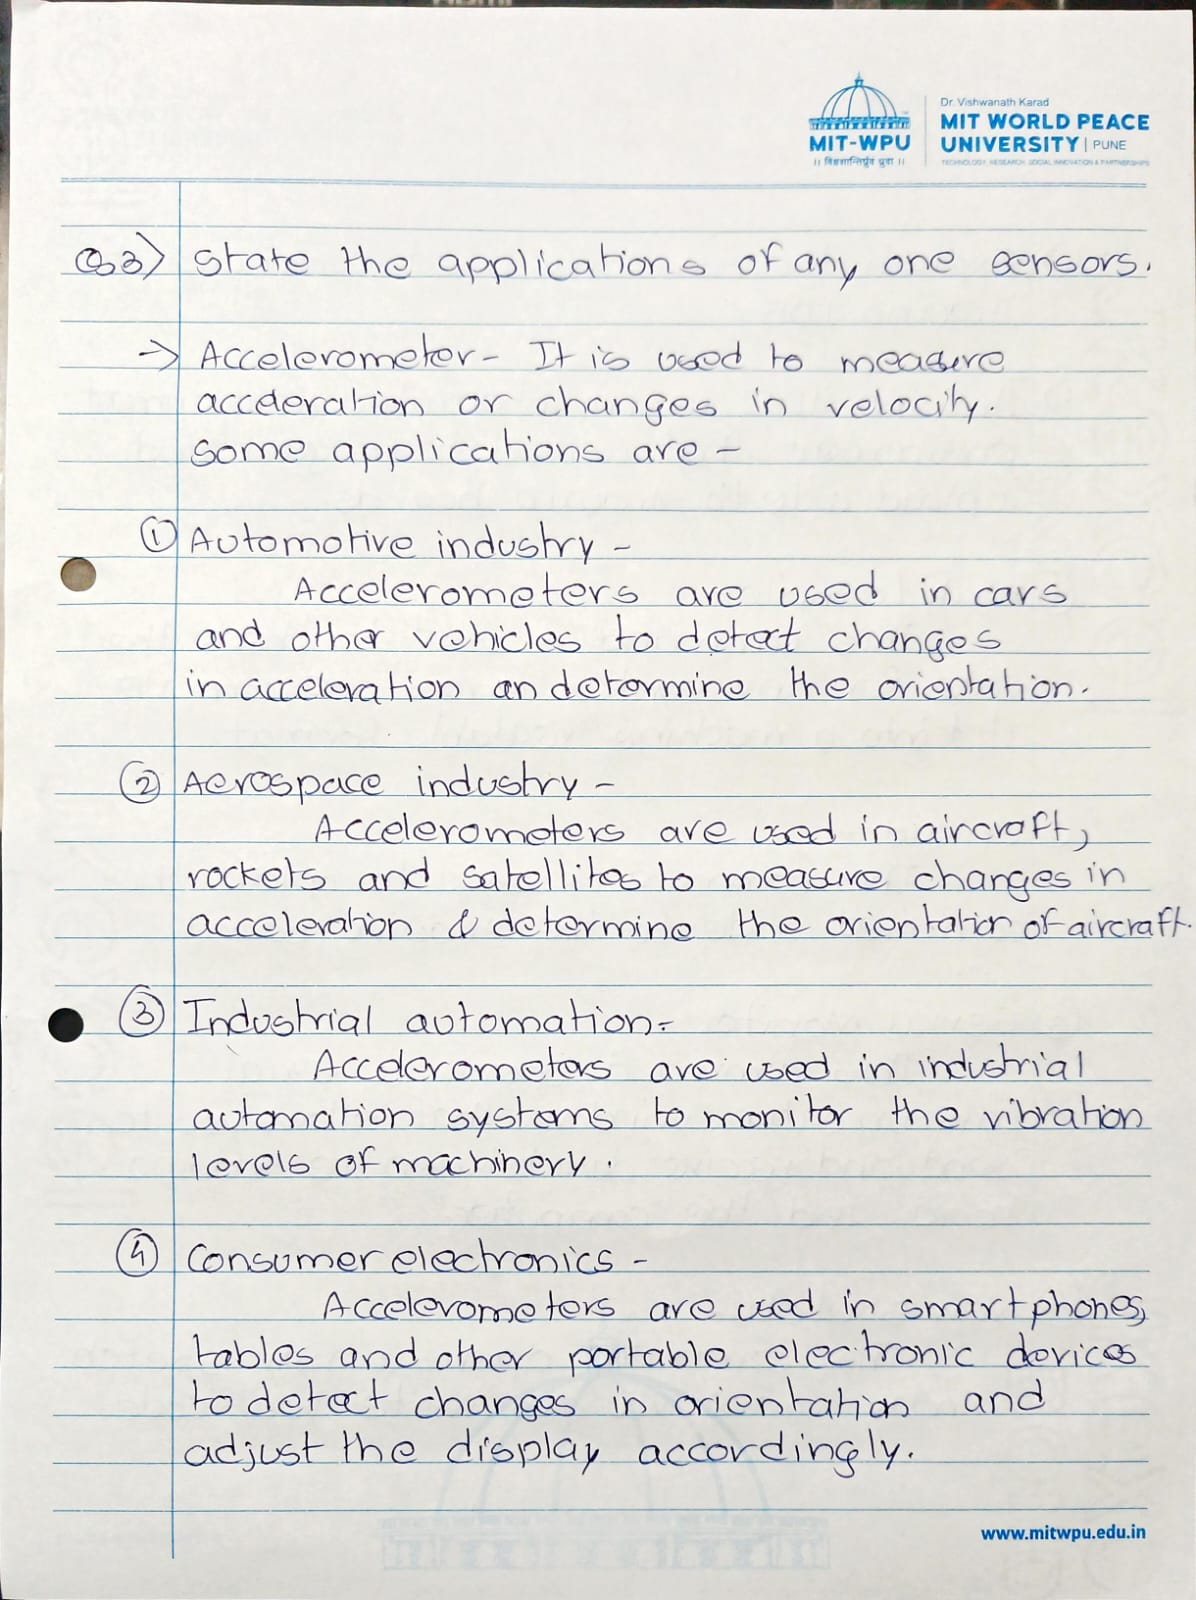 Dr. Vishwanath Karad
MIT WORLD PEACE
UNIVERSITY | PUNE
TECHNOLOGY, RESEARCH, SOCIAL INNOVATION & PARTNERSHIPS
MIT-WPU
॥ विश्वशान्तिर्ध्रुवं ध्रुवा ॥
Q3) State the applications of any one sensors.
→ Accelerometer - It is used to measure
acceleration or changes in velocity.
Some applications are -
① Automotive industry -
Accelerometers are used in cars
and other vehicles to detect changes
in acceleration an determine the orientation.
② Aerospace industry -
Accelerometers are used in aircraft,
rockets and satellites to measure changes in
acceleration & determine the orientation of aircraft.
③ Industrial automation -
Accelerometers are used in industrial
automation systems to monitor the vibration
levels of machinery.
④ Consumer electronics -
Accelerometers are used in smartphones,
tables and other portable electronic devices
to detect changes in orientation and
adjust the display accordingly.
www.mitwpu.edu.in